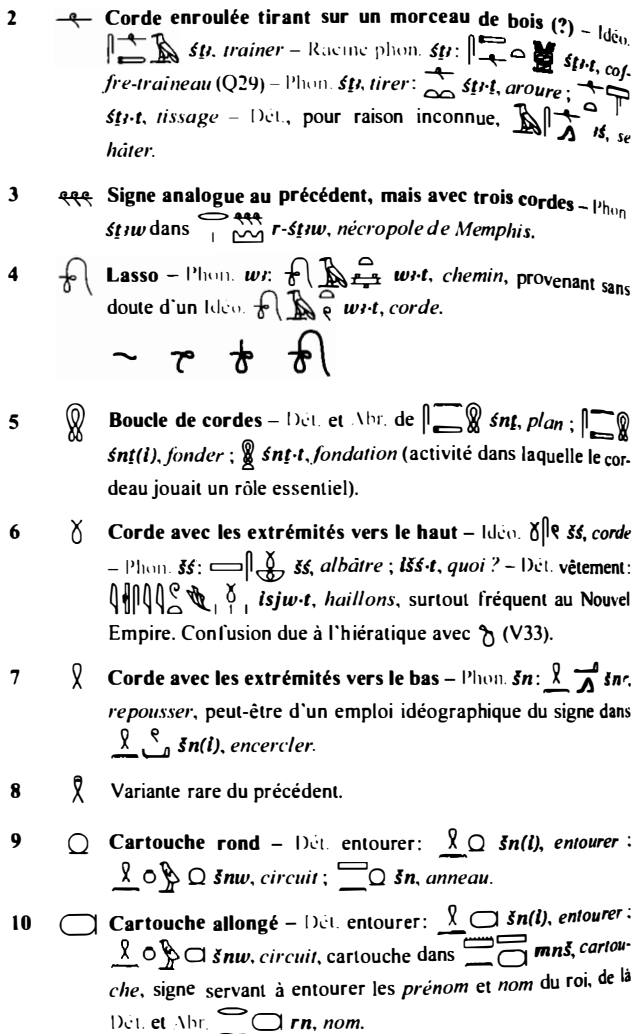 2 Corde enroulée tirant sur un morceau de bois (?) – Idéo.
śṯꜣ, traîner – Racine phon. śṯꜣ: śṯꜣ·t, cof-
fre-traîneau (Q29) – Phon. śṯꜣ, tirer: śṯꜣ·ṯ, aroure ;
śṯꜣ·t, tissage – Dét., pour raison inconnue, ꜣś, se
hâter.
3 Signe analogue au précédent, mais avec trois cordes – Phon
śṯꜣw dans r-śṯꜣw, nécropole de Memphis.
4 Lasso – Phon. wꜣ: wꜣ·t, chemin, provenant sans
doute d'un Idéo. wꜣ·t, corde.
5 Boucle de cordes – Dét. et Abr. de śnṯ, plan ;
śnṯ(i), fonder ; śnṯ·t, fondation (activité dans laquelle le cor-
deau jouait un rôle essentiel).
6 Corde avec les extrémités vers le haut – Idéo. šś, corde
– Phon. šś: šś, albâtre ; išś·t, quoi ? – Dét. vêtement:
isjw·t, haillons, surtout fréquent au Nouvel
Empire. Confusion due à l'hiératique avec (V33).
7 Corde avec les extrémités vers le bas – Phon. šn: šnꜥ,
repousser, peut-être d'un emploi idéographique du signe dans
šn(i), encercler.
8 Variante rare du précédent.
9 Cartouche rond – Dét. entourer: šn(i), entourer :
šnw, circuit ; šn, anneau.
10 Cartouche allongé – Dét. entourer: šn(i), entourer :
šnw, circuit, cartouche dans mnš, cartou-
che, signe servant à entourer les prénom et nom du roi, de là
Dét. et Abr. rn, nom.